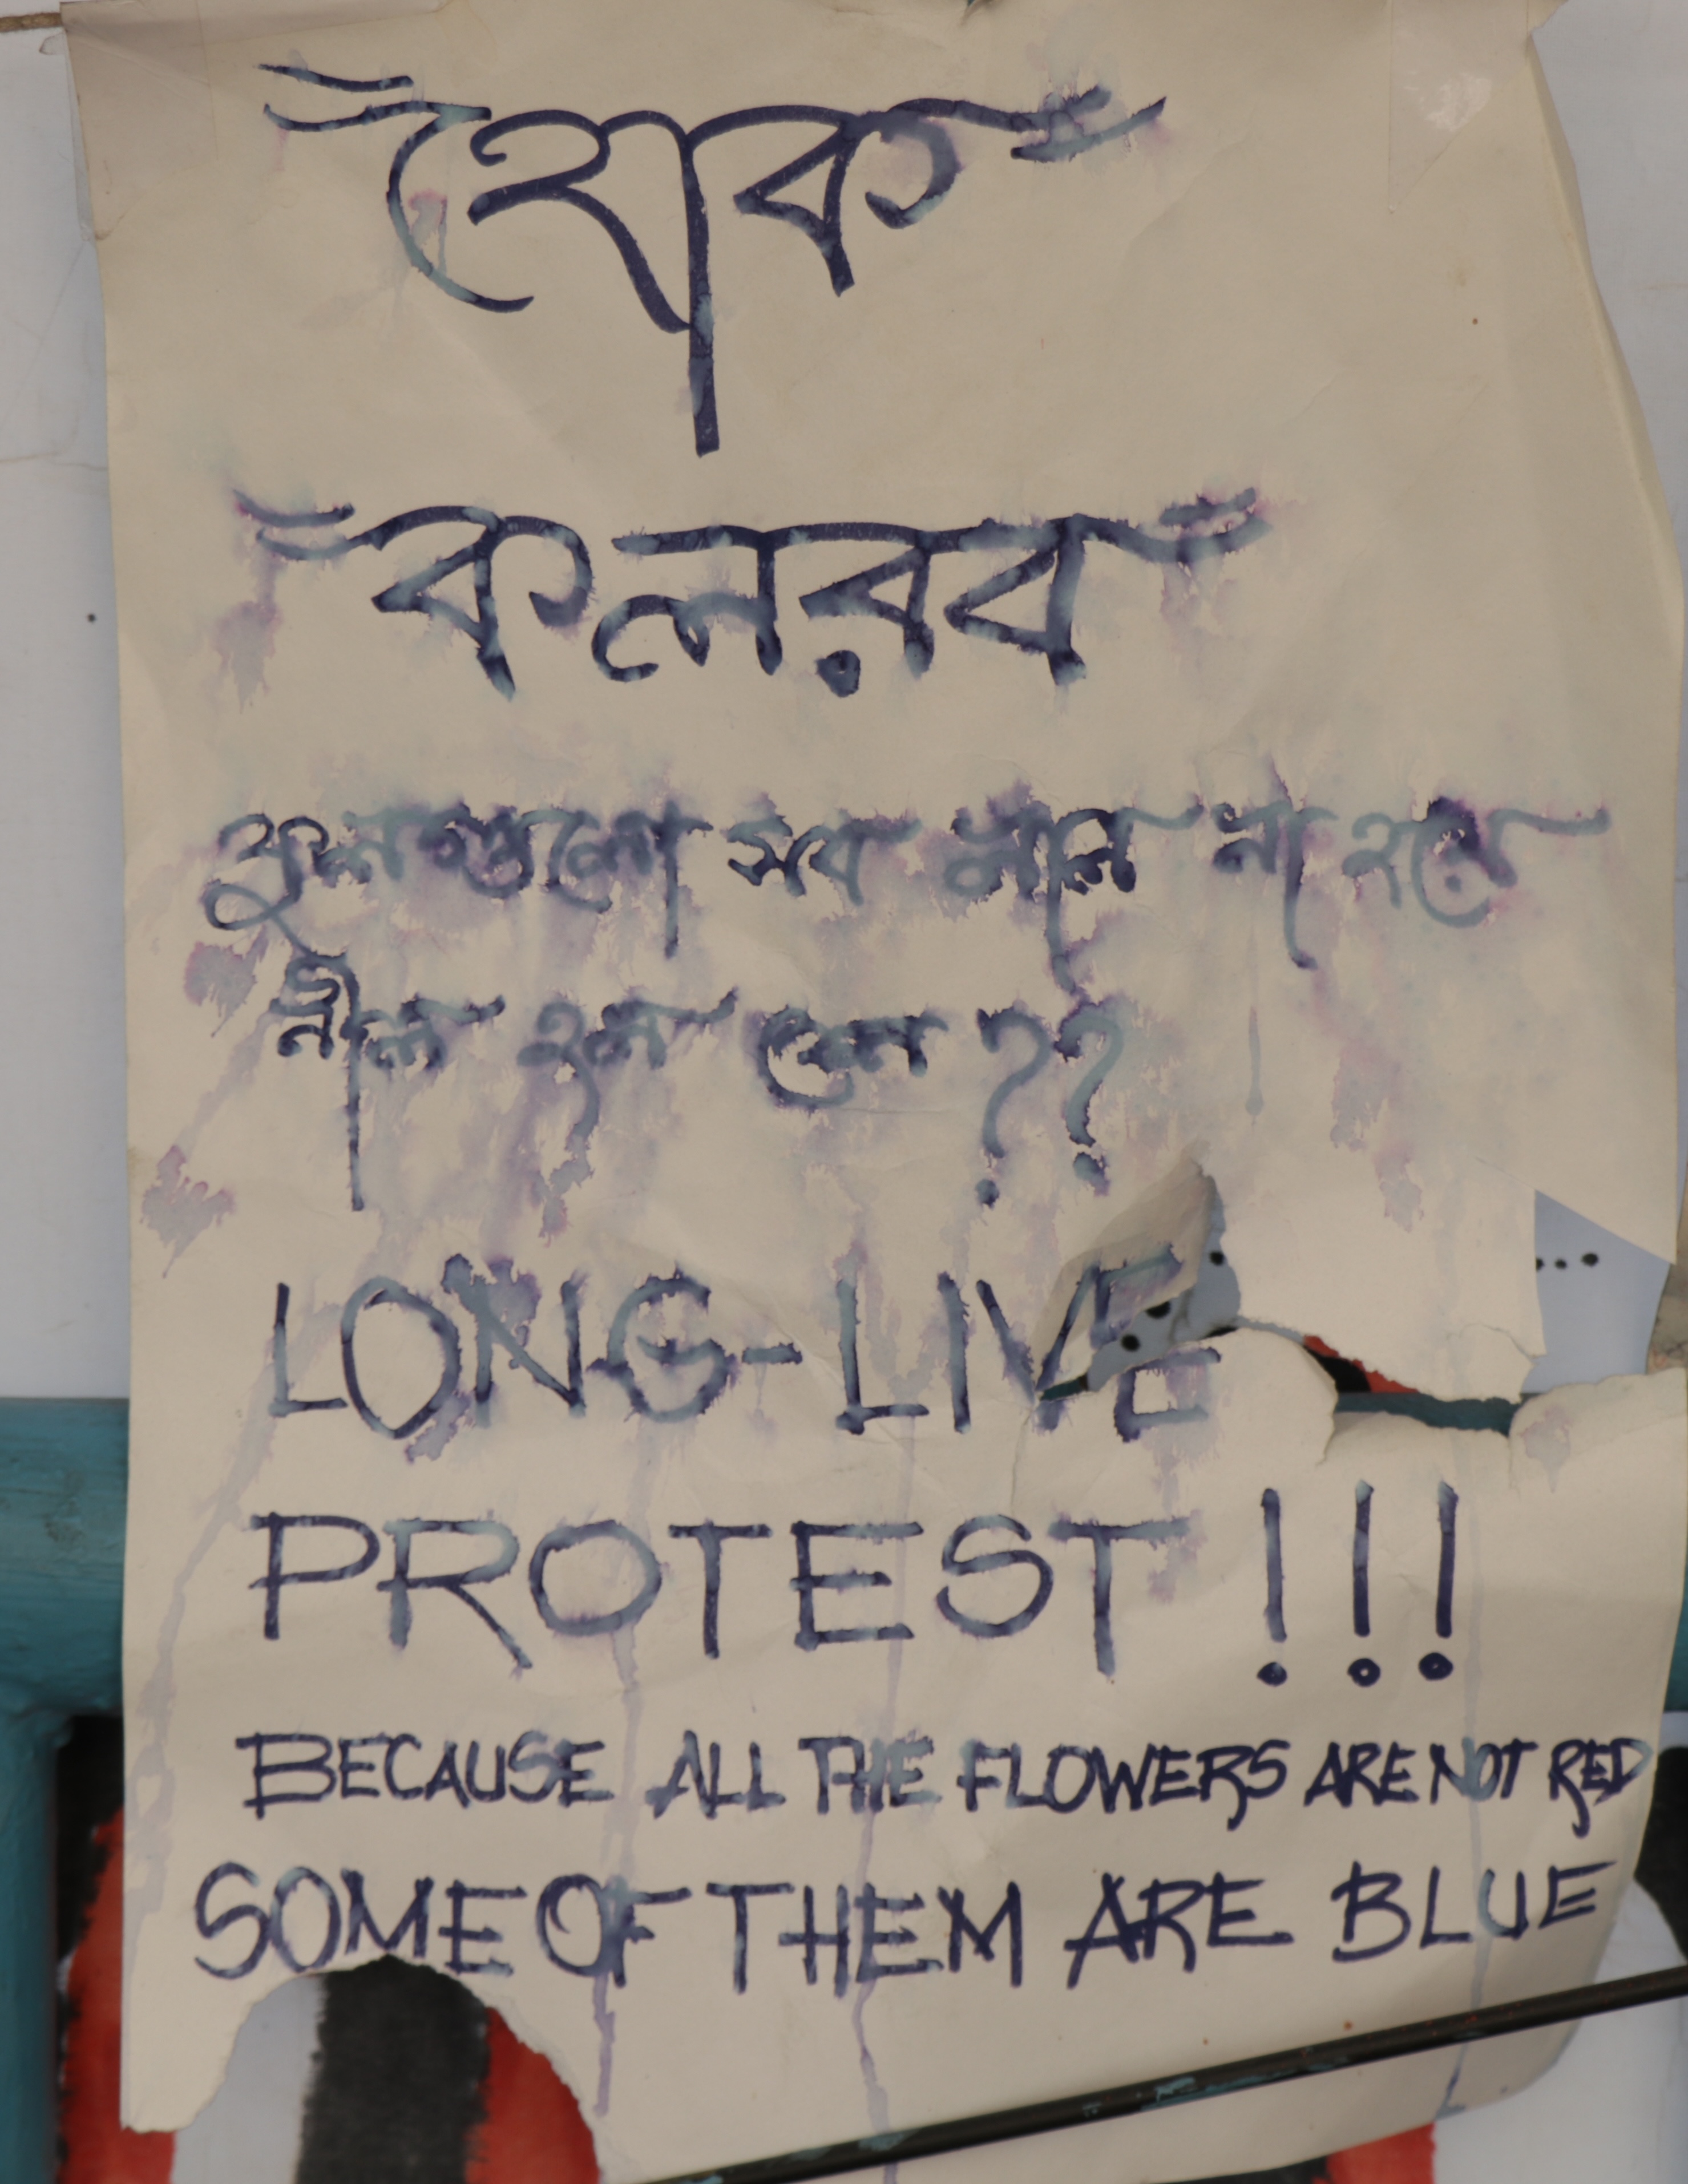 হোক
কলরব
ফুলগুলো সব লাল না হয়ে
নীল হল কেন ??
LONG-LIVE
PROTEST !!!
BECAUSE ALL THE FLOWERS ARE NOT RED
SOME OF THEM ARE BLUE